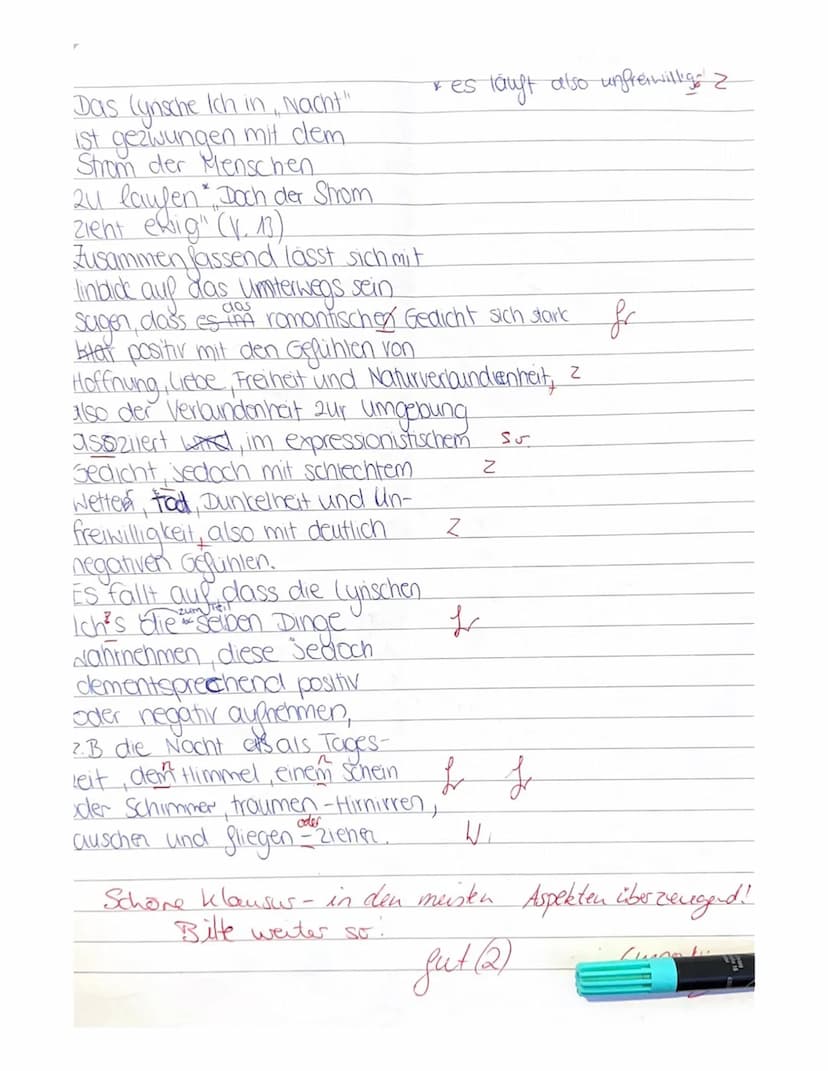 * es läuft also unfreiwillig Z
Das Lyrische Ich in „Nacht"
ist gezwungen mit dem
Strom der Menschen
zu laufen* „Doch der Strom
zieht ewig" (V. 13)
Zusammenfassend lässt sich mit
inblick auf das Unterwegs sein
das
sagen, dass es im romantischen Gedicht sich stark gr
positiv mit den Gefühlen von
Hoffnung, Liebe, Freiheit und Naturverbundenheit, Z
also der Verbundenheit zur Umgebung
asoziiert wird, im expressionistischem so
Gedicht, jedoch mit schlechtem Z
Wetter, Tod, Dunkelheit und Un-
freiwilligkeit, also mit deutlich Z
negativen Gefühlen.
Es fällt auf, dass die Lyrischen
zum Teil
Ich's die selben Dinge gr
wahrnehmen, diese jedoch
dementsprechend positiv
oder negativ aufnehmen,
z.B die Nacht als Tages-
zeit, dem Himmel, einem Schein gr gr
oder Schimmer, träumen - Hirnirren,
oder
rauschen und fliegen - ziehen. W
Schöne Klausur - in den meisten Aspekten überzeugend!
Bitte weiter so!
gut (2)